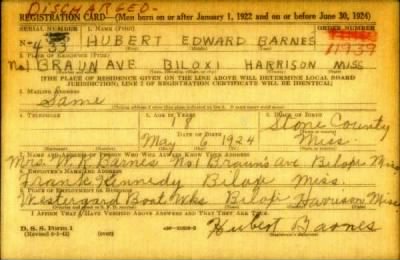 DISCHARGED-
REGISTRATION CARD—(Men born on or after January 1, 1922 and on or before June 30, 1924)
SERIAL NUMBER 1. NAME (Print) ORDER NUMBER
N-433 HUBERT EDWARD BARNES 11939
2. PLACE OF RESIDENCE (Print)
No1 BRAUN AVE BILOXI HARRISON MISS
[THE PLACE OF RESIDENCE GIVEN ON THE LINE ABOVE WILL DETERMINE LOCAL BOARD
JURISDICTION; LINE 2 OF REGISTRATION CERTIFICATE WILL BE IDENTICAL]
3. MAILING ADDRESS
Same
4. TELEPHONE
18 Stone County
DATE OF BIRTH
May 6 1924 Miss.
7. NAME AND ADDRESS OF PERSON WHO WILL ALWAYS KNOW YOUR ADDRESS
Mrs. Barnes No1 Braun Ave Biloxi Miss
8. EMPLOYER'S NAME AND ADDRESS
Frank Kennedy Biloxi Miss.
9. PLACE OF EMPLOYMENT OR BUSINESS
Westergard Boat Wks Biloxi Harrison Miss
I AFFIRM THAT I HAVE VERIFIED ABOVE ANSWERS AND THAT THEY ARE TRUE.
D. S. S. Form 1
Hubert Barnes